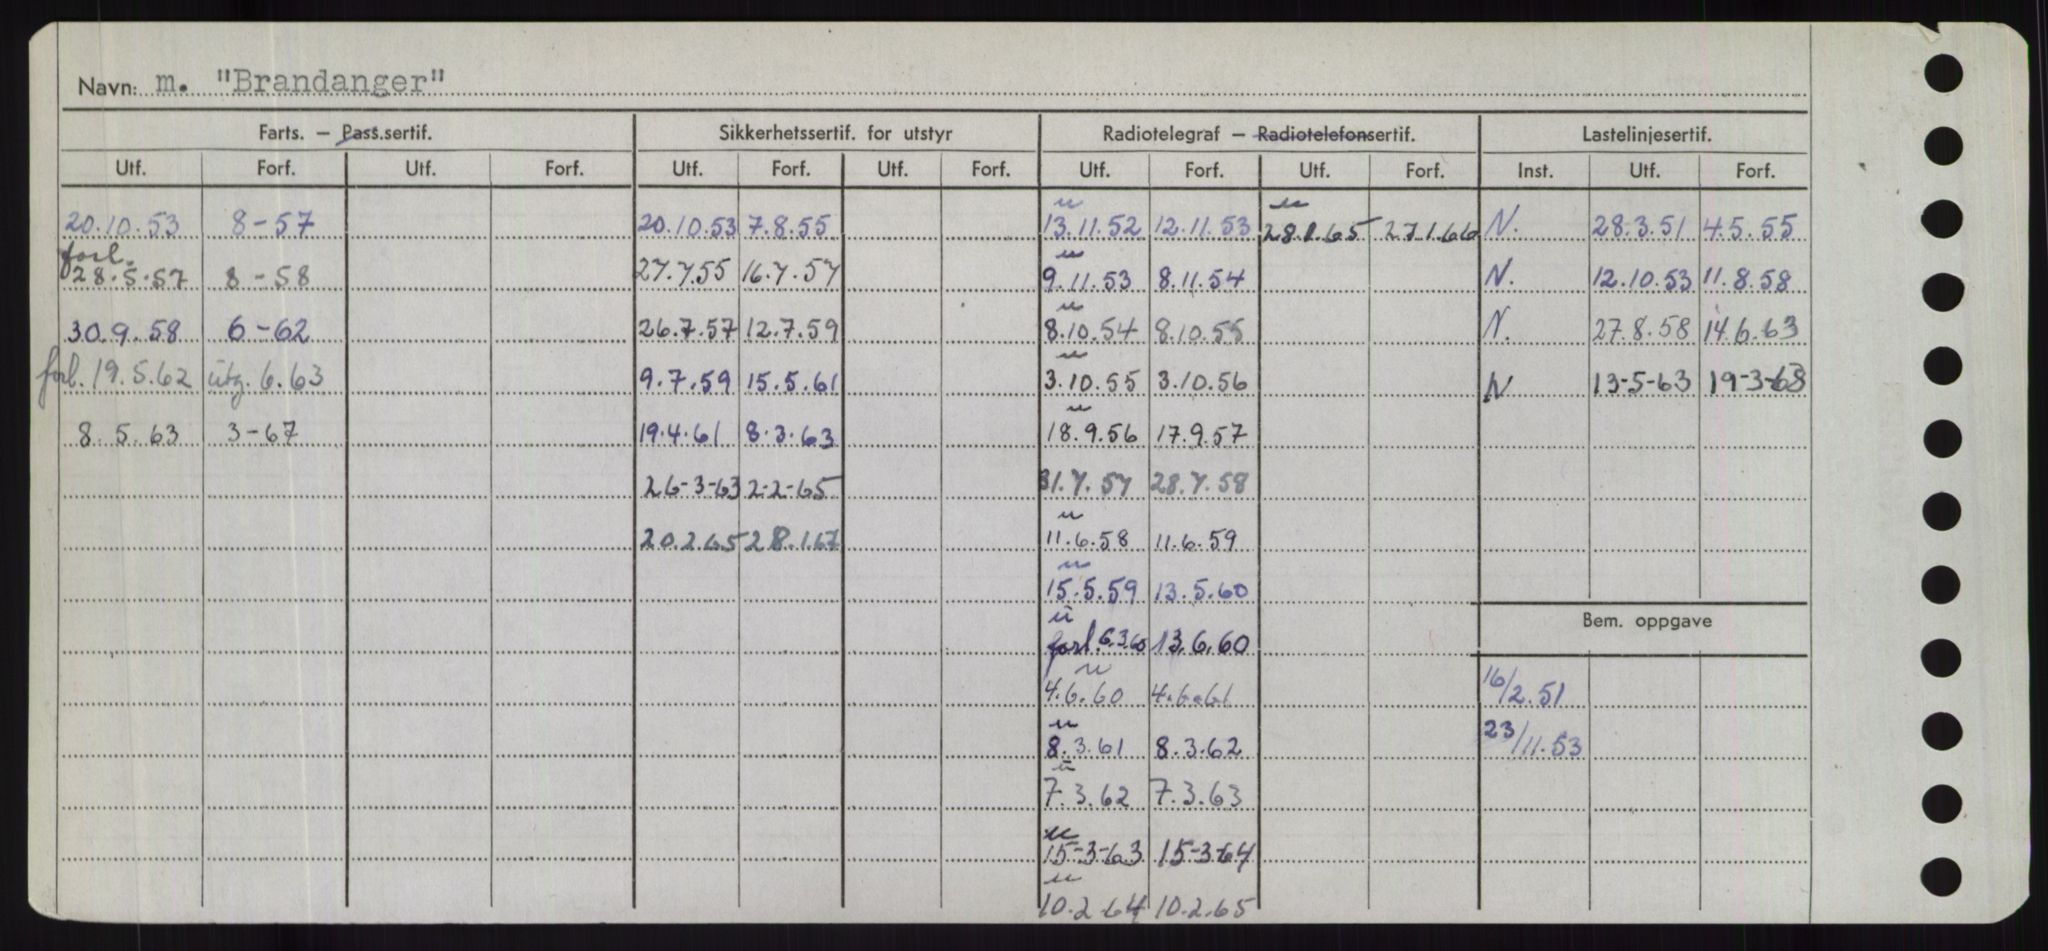 Navn: m. "Brandanger"
Farts. – Pass.sertif. Sikkerhetssertif. for utstyr Radiotelegraf – Radiotelefonsertif. Lastelinjesertif.
Utf. Forf. Utf. Forf. Utf. Forf. Utf. Forf. Utf. Forf. Utf. Forf. Inst. Utf. Forf.
u u
20.10.53 8-57 20.10.53 7.8.55 13.11.52 12.11.53 28.1.65 27.1.66 N. 28.3.51 4.5.55
forl. u
28.5.57 8-58 27.7.55 16.7.57 9.11.53 8.11.54 N. 12.10.53 11.8.58
u
30.9.58 6-62 26.7.57 12.7.59 8.10.54 8.10.55 N. 27.8.58 14.6.63
u
forl. 19.5.62 utg. 6.63 9.7.59 15.5.61 3.10.55 3.10.56 N 13-5-63 19-3-68
u
8.5.63 3-67 19.4.61 8.3.63 18.9.56 17.9.57
26-3-63 2-2-65 31.7.57 28.7.58
u
20.2.65 28.1.67 11.6.58 11.6.59
u
15.5.59 13.5.60
Bem. oppgave
u
forl. 6.3.60 13.6.60
u
4.6.60 4.6.61 16/2.51
u
8.3.61 8.3.62 23/11.53
u
7.3.62 7.3.63
u
15-3-63 15-3-64
u
10.2.64 10.2.65